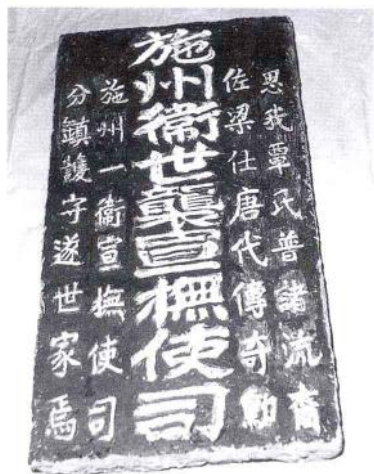 思我覃氏普諸流裔
佐梁仕唐代傳奇勛
施州衞世襲宣撫使司
施州一衞宣撫使司
分鎮護守遂世家焉